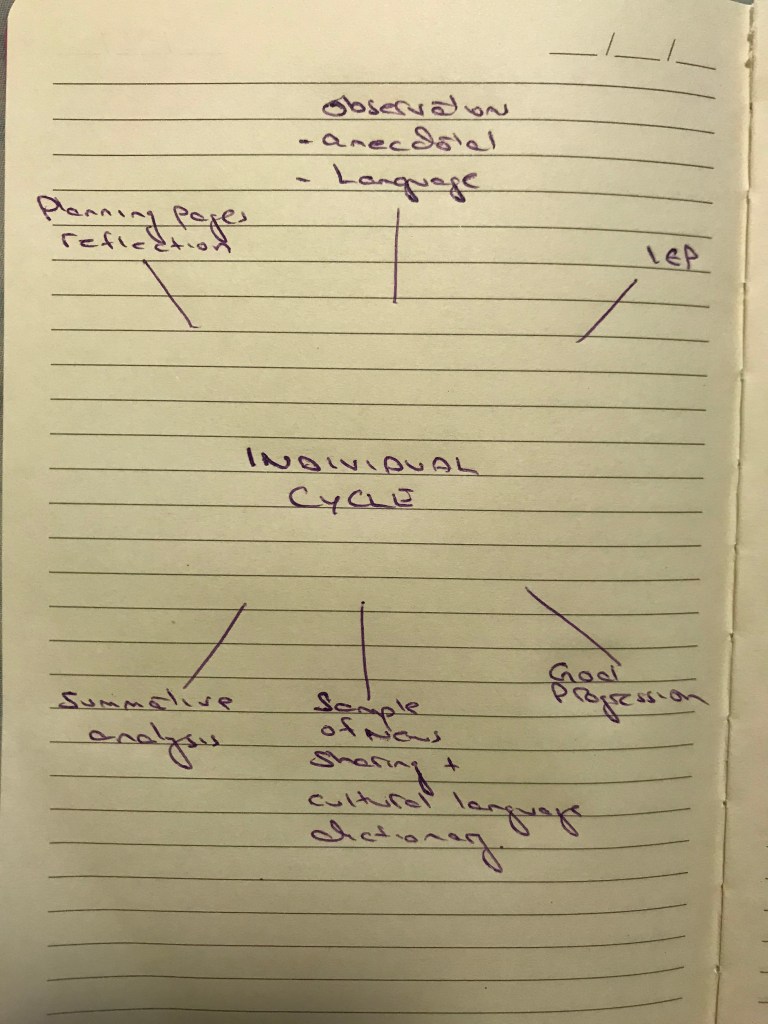 Observation
- anecdotal
- Language
Planning pages
reflection
IEP
INDIVIDUAL
CYCLE
Goal
Progression
Summative
analysis
Sample
of News
Sharing +
cultural language
dictionary.